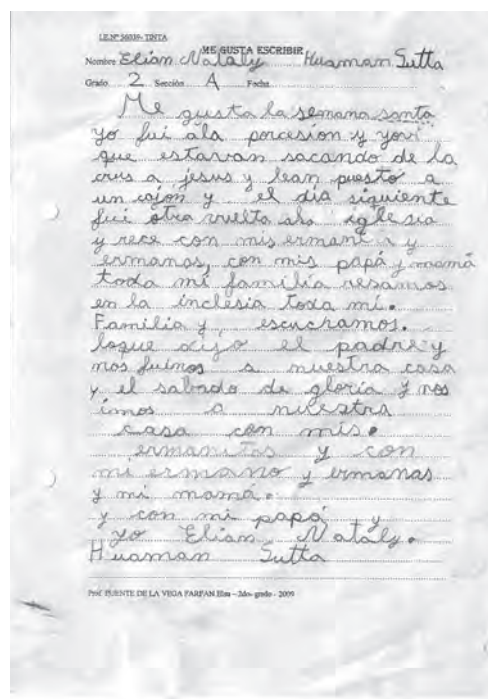 I.E.Nº 56039- TINTA
ME GUSTA ESCRIBIR
Nombre Elian Nataly Huaman Sutta
Grado 2 Sección A Fecha
Me gusta la semana santa
yo fui ala porcesion y yovi
que estavan sacando de la
crus a jesus y lean puesto a
un cajón y el dia siguiente
fui otra vuelta ala iglesia
y rece con mis ermanita y
ermanas, con mis papá y mamá
toda mi familia resamos
en la inclesia toda mi.
Familia y escuchamos.
loque dijo el padre y
nos fuinos a nuestra casa
y el sabado de gloria y nos
imos a nuestra
casa con mis.
ermanitas y con
mi ermano y ermanas
y mi mama.
y con mi papá y
yo Elian Nataly.
Huaman Sutta
Prof. PUENTE DE LA VEGA FARFAN - 2do- grado - 2009